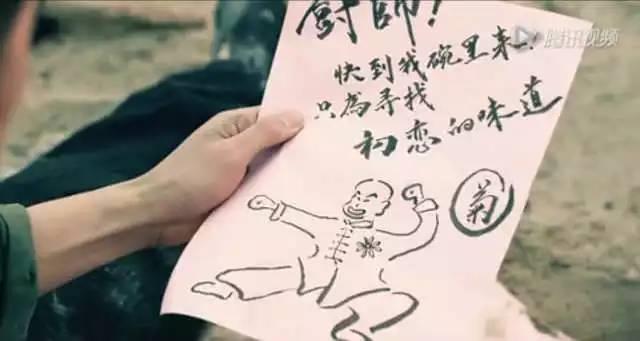 廚師！
快到我碗里来！
只為寻找
初恋的味道
菊
腾讯视频